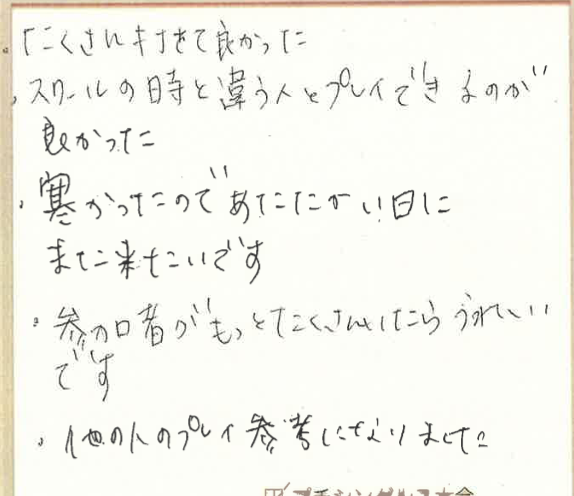 ・たくさん打てて良かった
・スクールの時と違う人とプレイできるのが
良かった
・寒かったのであたたかい日に
また来たいです
・参加者がもっとたくさんいたらうれしい
です
・他の人のプレイ参考になりました